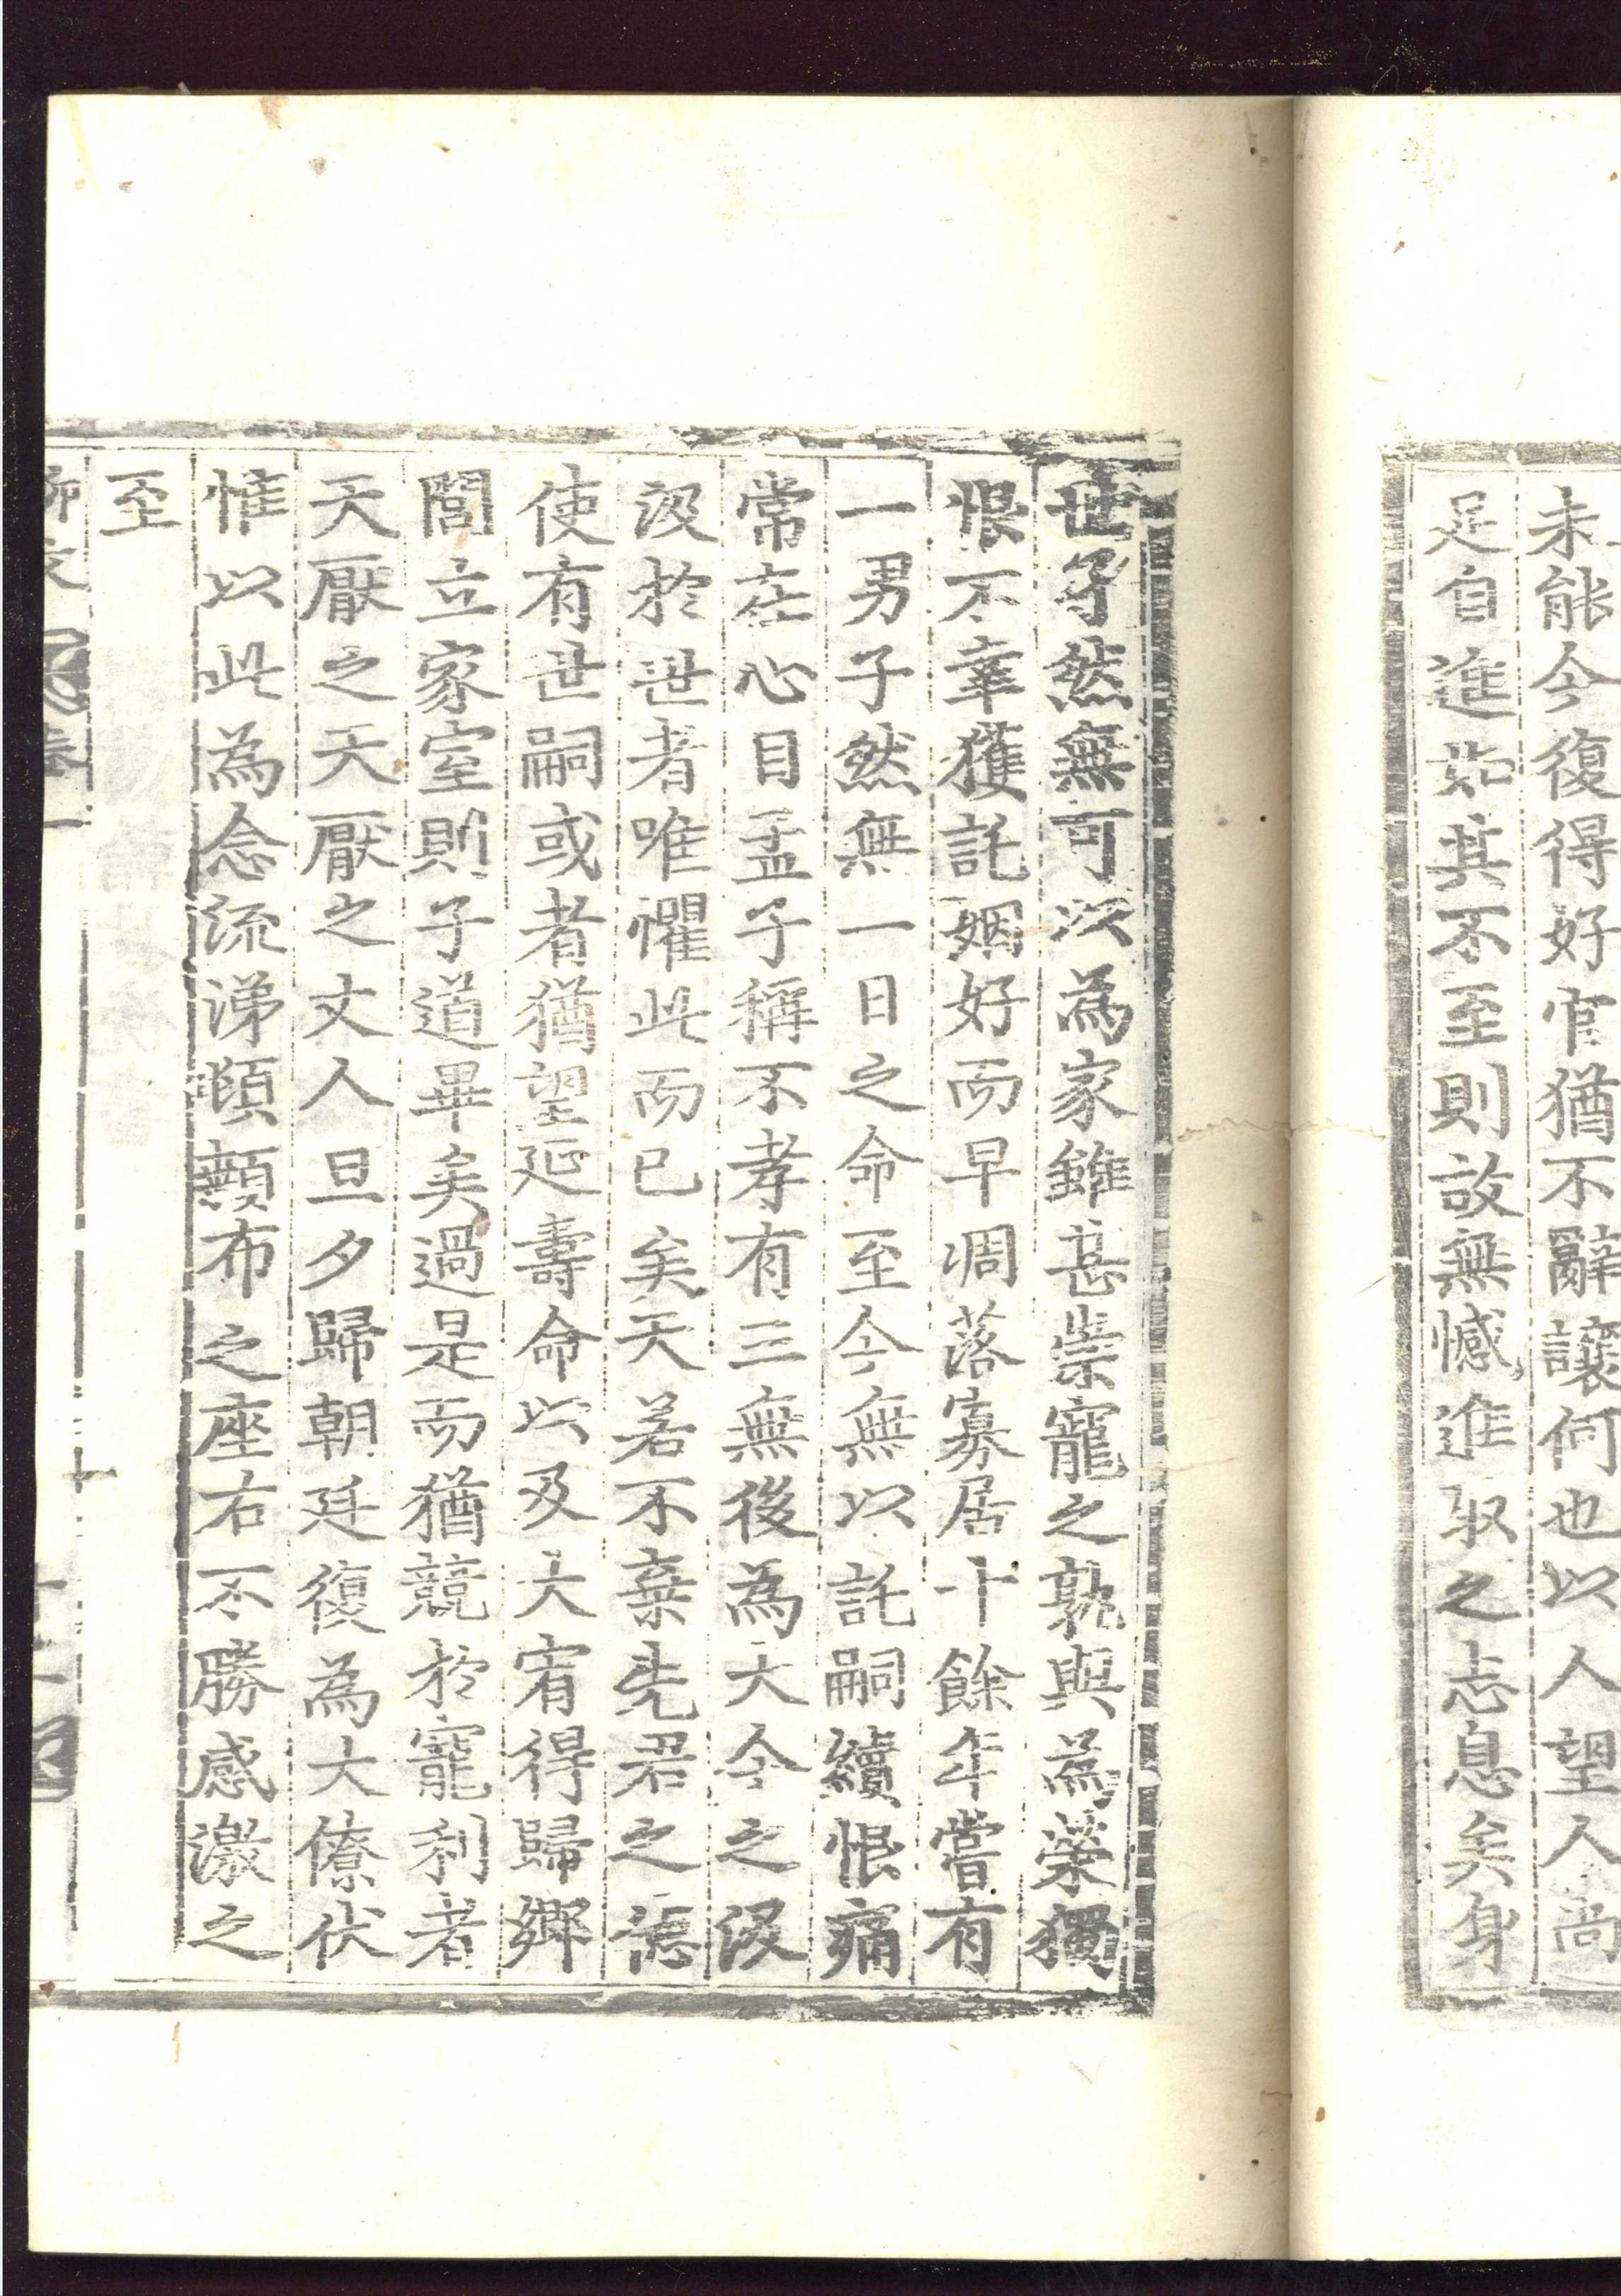 未能今復得好官猶不辭讓何也以人望人尚
足自進如其不至則故無憾進取之志息矣身
世孑然無可以為家雖甚崇寵之孰與為榮獨
恨不幸獲託姻好而早凋落寡居十餘年嘗有
一男子然無一日之命至今無以託嗣續恨痛
常在心目孟子稱不孝有三無後為大今之汲
汲於世者唯懼此而已矣天若不棄先君之德
使有世嗣或者猶望延壽命以及大宥得歸鄉
閭立家室則子道畢矣過是而猶競於寵利者
天厭之天厭之丈人旦夕歸朝廷復為大僚伏
惟以此為念流涕頓顙布之座右不勝感激之
至